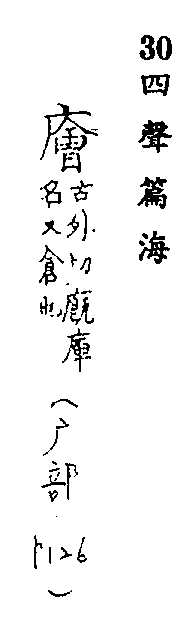 30四聲篇海
廥
古外切廐庫
名又倉也
(广部
p126)